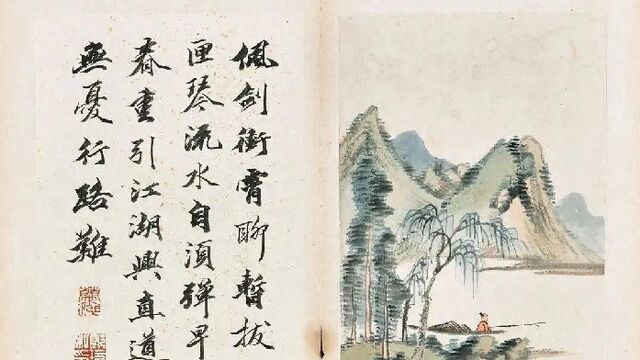 佩劍衝霄聊暫拔
匣琴流水自須彈早
春重引江湖興直道
無憂行路難